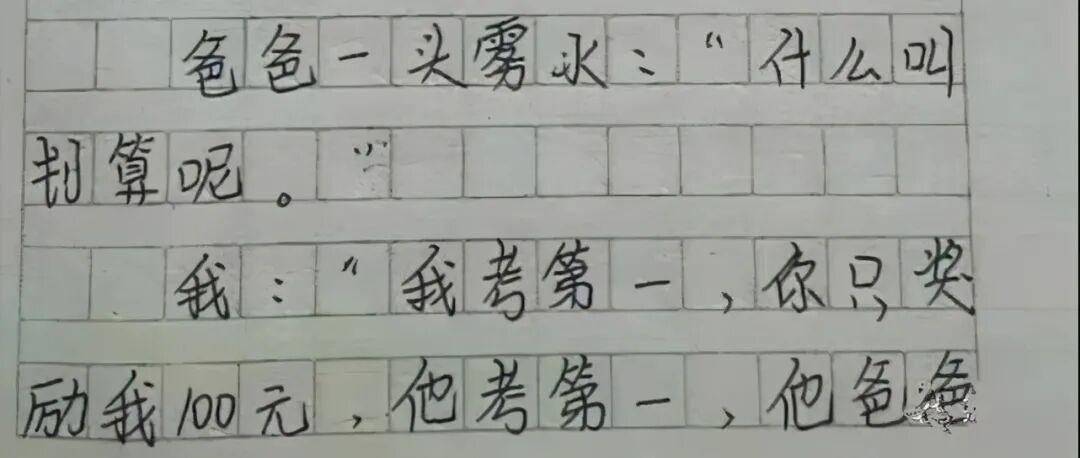 爸爸一头雾水：“什么叫
划算呢。”
我：“我考第一，你只奖
励我100元，他考第一，他爸爸